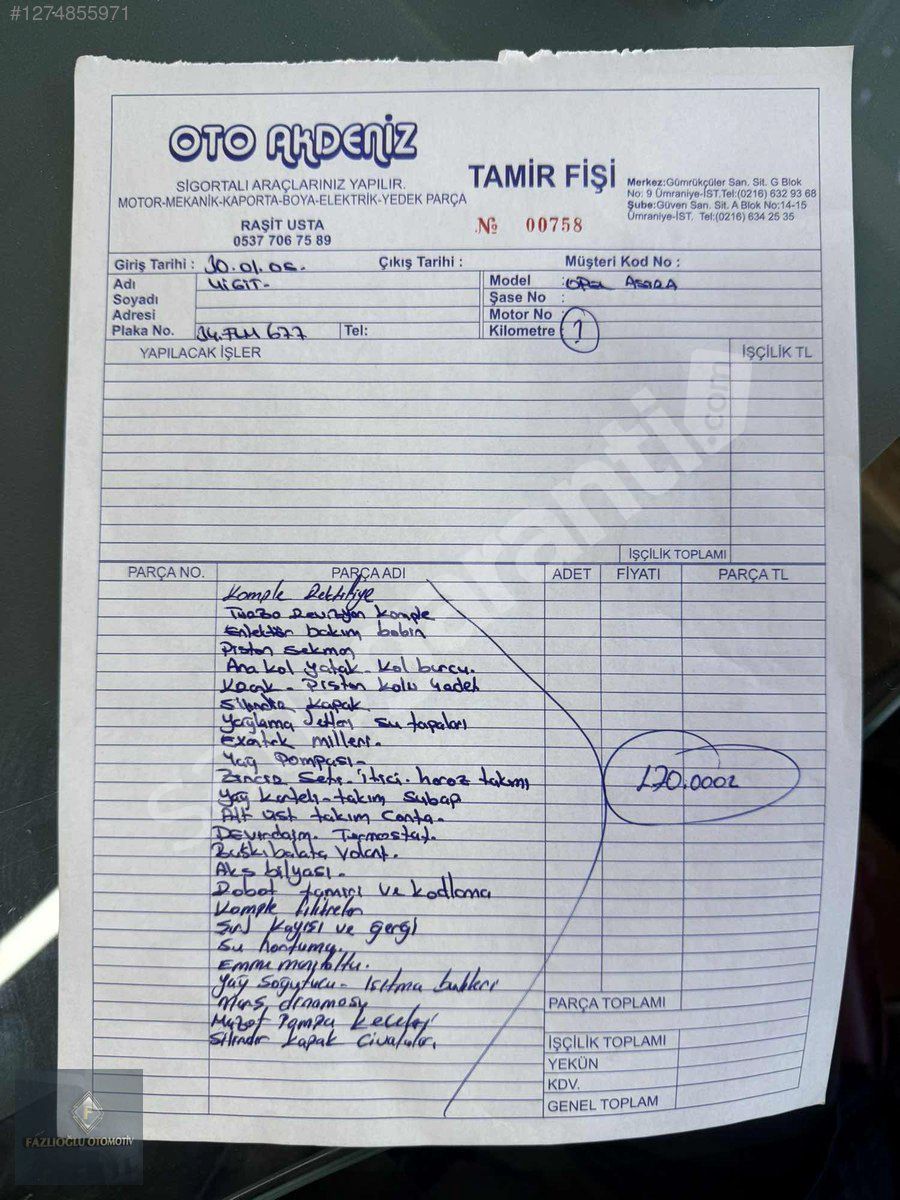 #1274855971
OTO AKDENİZ
SİGORTALI ARAÇLARINIZ YAPILIR.
MOTOR-MEKANİK-KAPORTA-BOYA-ELEKTRİK-YEDEK PARÇA
RAŞİT USTA
0537 706 75 89
TAMİR FİŞİ
№ 00758
Merkez:Gümrükçüler San. Sit. G Blok
No: 9 Ümraniye-İST.Tel:(0216) 632 93 68
Şube:Güven San. Sit. A Blok No:14-15
Ümraniye-İST. Tel:(0216) 634 25 35
Giriş Tarihi : 30.01.06. Çıkış Tarihi : Müşteri Kod No :
Adı YİGİT- Model : OPEL ASTRA
Soyadı Şase No :
Adresi Motor No :
Plaka No. 34.FLM 677 Tel: Kilometre :
YAPILACAK İŞLER İŞÇİLİK TL
İŞÇİLİK TOPLAMI
PARÇA NO. PARÇA ADI ADET FİYATI PARÇA TL
Komple Rektifiye
Turbo Revizyon komple
Enjektör bakım bobin
Piston Sekman
Ana kol yatak - kol burcu.
Kaçık - Piston kolu 4 adet
Silindir kapak
Yağlama Jetleri su tapaları
Exantrik milleri.
Yağ Pompası-
Zincir Seti - itici - horoz takımı
170.000₺
Yağ Karteli - takım Subap
Alt Üst takım Conta.
Devirdaim. Termostat.
Baskı balata Volant.
Aks bilyası.
Robot tamiri ve kodlama
Komple filitreler
kayışı ve gergi
Su hortumu.
Emme manifoltu.
Yağ Soğutucu - ısıtma
Marş dinamosu
Mazot Pompa keçeleri
Silindir kapak Civataları.
PARÇA TOPLAMI
İŞÇİLİK TOPLAMI
YEKÜN
KDV.
GENEL TOPLAM
F
FAZLIOĞLU OTOMOTİV